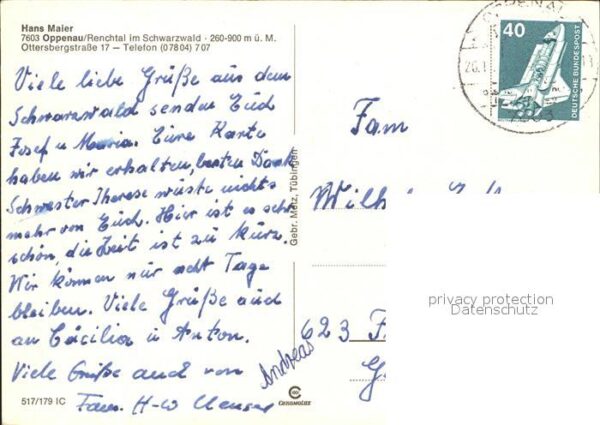 Hans Maier
7603 Oppenau/Renchtal im Schwarzwald · 260-900 m ü. M.
Ottersbergstraße 17 — Telefon (07804) 707
Viele liebe Grüße aus dem
Schwarzwald senden Euch
Josef u Maria. Eure Karte
haben wir erhalten, besten Dank
Schwester Therese wuste nichts
mehr von Euch. Hier ist es sehr
schön, die Zeit ist zu kurz.
Wir können nur acht Tage
bleiben. Viele Grüße auch
an Cäcilia u Anton.
Viele Grüße auch von Andreas
Fam. H-W
517/179 IC
Gebr. Metz, Tübingen
CEKAMOLUX
40
DEUTSCHE BUNDESPOST
7603
Fam
623
privacy protection
Datenschutz